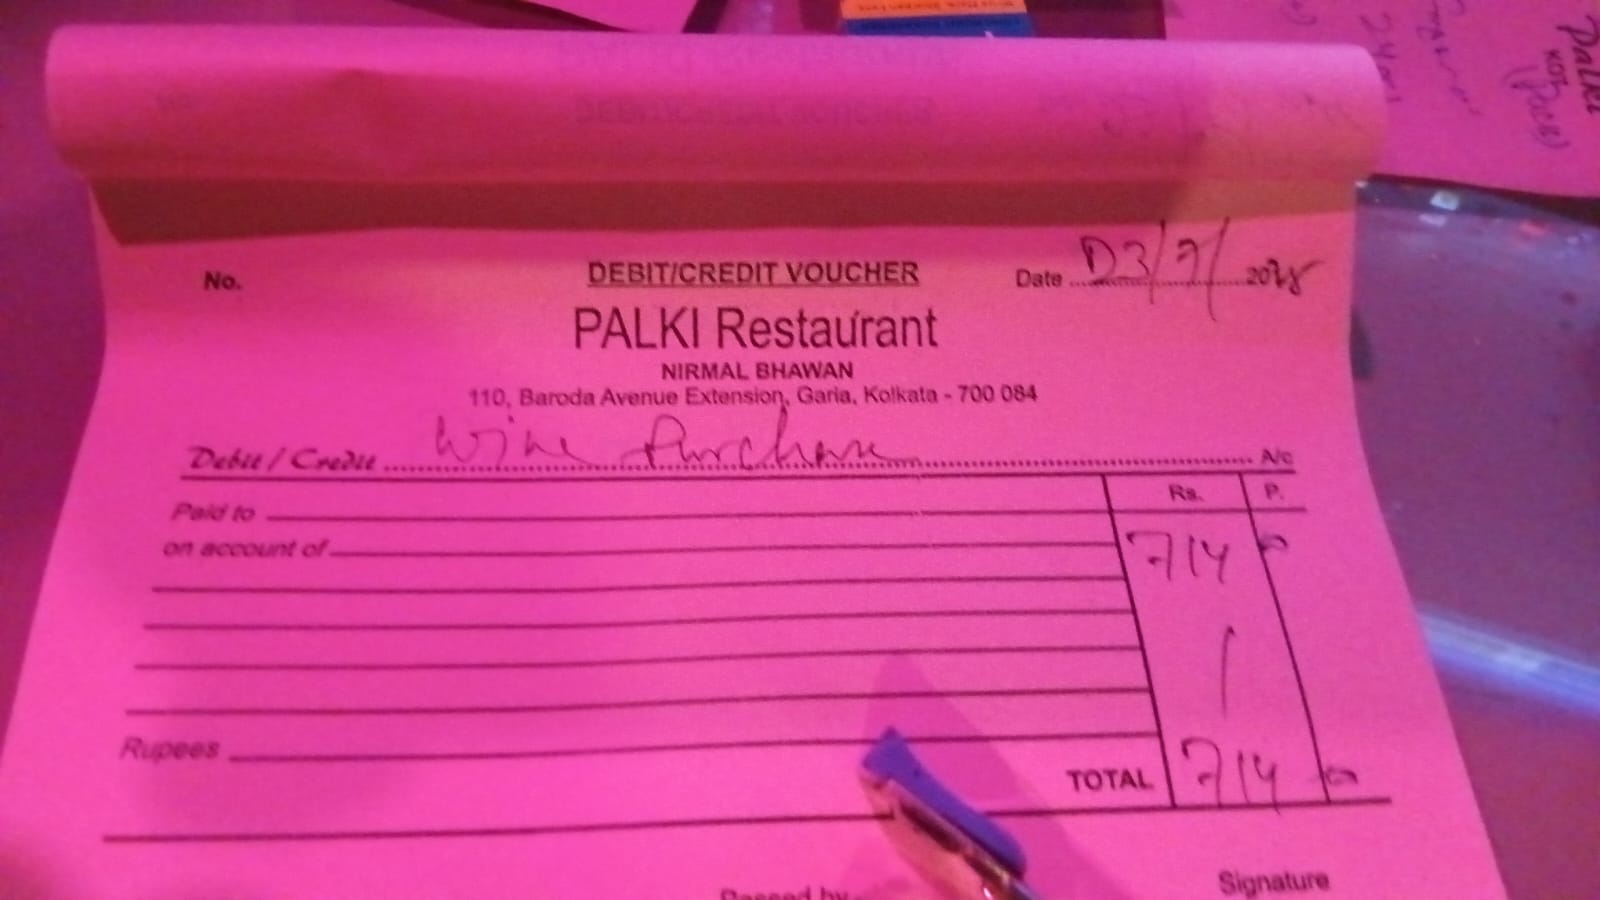 Palki
KOT
No.
DEBIT/CREDIT VOUCHER
Date 03/7/ 20
PALKI Restaurant
NIRMAL BHAWAN
110, Baroda Avenue Extension, Garia, Kolkata - 700 084
Debit / Credit Wine Purchase A/c
Rs. P.
Paid to
on account of
714
Rupees
TOTAL 714
Passed by
Signature